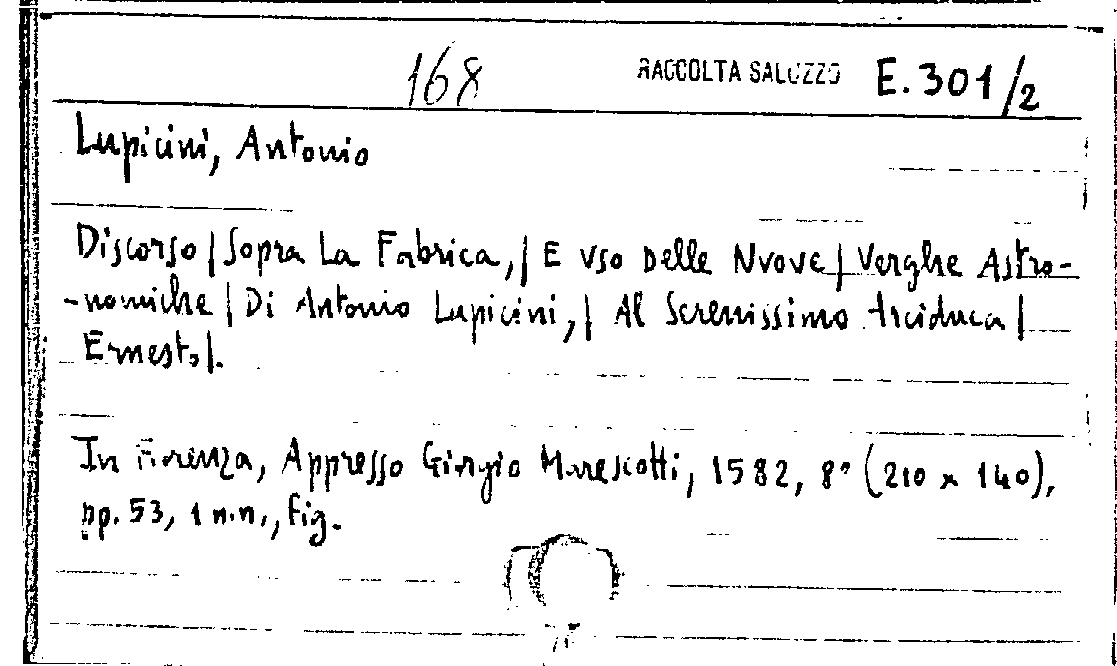 168 RACCOLTA SALUZZO E. 301/2
Lupicini, Antonio
Discorso | Sopra La Fabrica, | E vso Delle Nvove | Verghe Astro-
-nomiche | Di Antonio Lupicini, | Al Serenissimo Arciduca |
Ernesto |.
In Fiorenza, Appresso Giorgio Marescotti, 1582, 8° (210 x 140),
pp. 53, 1 n.n., fig.